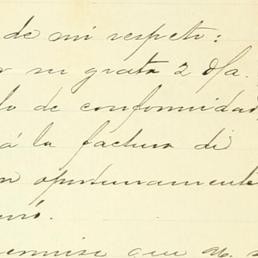 de mi respeto:
su grata 2 d/a.
lo de conformidad
á la factura di
oportunamente
que